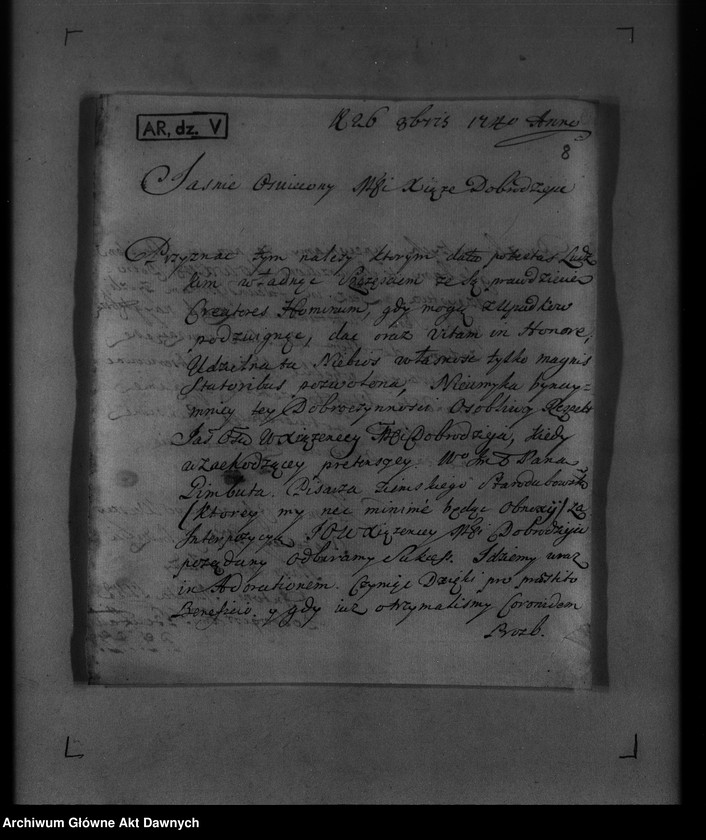 AR, dz. V
R 26 8bris 1740 Anno
8
Jasnie Oswiecony Mści Xiąze Dobrodzieiu
Przyznac tym nalezy ktorym data potestas Ludz
kim władnąc Szczęsciem ze są prawdziwie
Creatores Hominum, gdy mogą z Upadkow
podzwignąc, dac oraz Vitam in Honore,
Udzielna ta Niebios własnosc tylko magnis
Statoribus pozwolona, Nieumyka bynay-
mniey tey Dobroczynnosci Osobliwy Respekt
Jaś Oś WXiązencey Mśći Dobrodzieja, kiedy
w zachodzącey pretensyey Wo Jm Pana
Pimbuta Pisarza Ziemskiego Starodubowsk
(ktorey my nec minimé będąc obnoxij) za
Interpozycyą JOWXiązencey Mśći Dobrodzieia
pożądany odbieramy Sukces. Idziemy wraz
in Adorationem. Czynię Dzięki pro præstito
Beneficio. y gdy iuz otrzymalismy Coronidem
Archiwum Główne Akt Dawnych